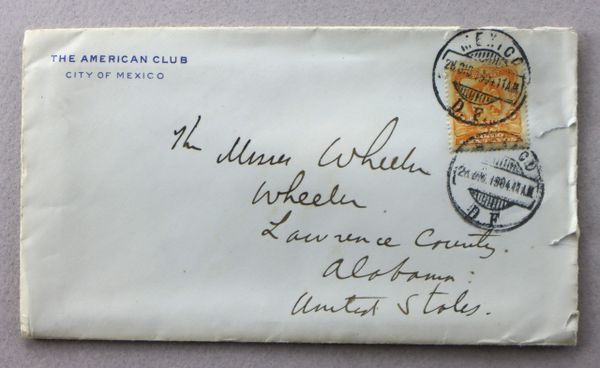 THE AMERICAN CLUB
CITY OF MEXICO
MEXICO
28.DIC.1904.11 A.M.
D. F.
28.DIC.1904.11 A.M.
D. F.
The Misses Wheeler
Wheeler
Lawrence County.
Alabama.
United States.